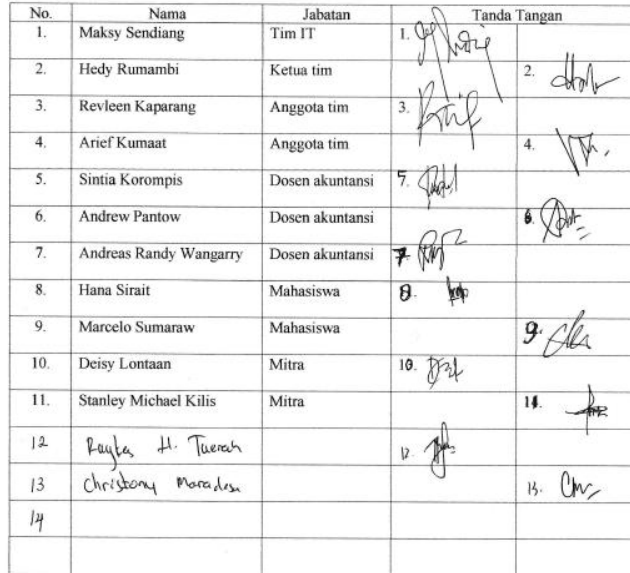 No. Nama Jabatan Tanda Tangan
1. Maksy Sendiang Tim IT 1.
2. Hedy Rumambi Ketua tim 2.
3. Revleen Kaparang Anggota tim 3.
4. Arief Kumaat Anggota tim 4.
5. Sintia Korompis Dosen akuntansi 5.
6. Andrew Pantow Dosen akuntansi 6.
7. Andreas Randy Wangarry Dosen akuntansi 7.
8. Hana Sirait Mahasiswa 8.
9. Marcelo Sumaraw Mahasiswa 9.
10. Deisy Lontaan Mitra 10.
11. Stanley Michael Kilis Mitra 11.
12 H. Tuerah 12.
13 Christony Maradesa 13.
14